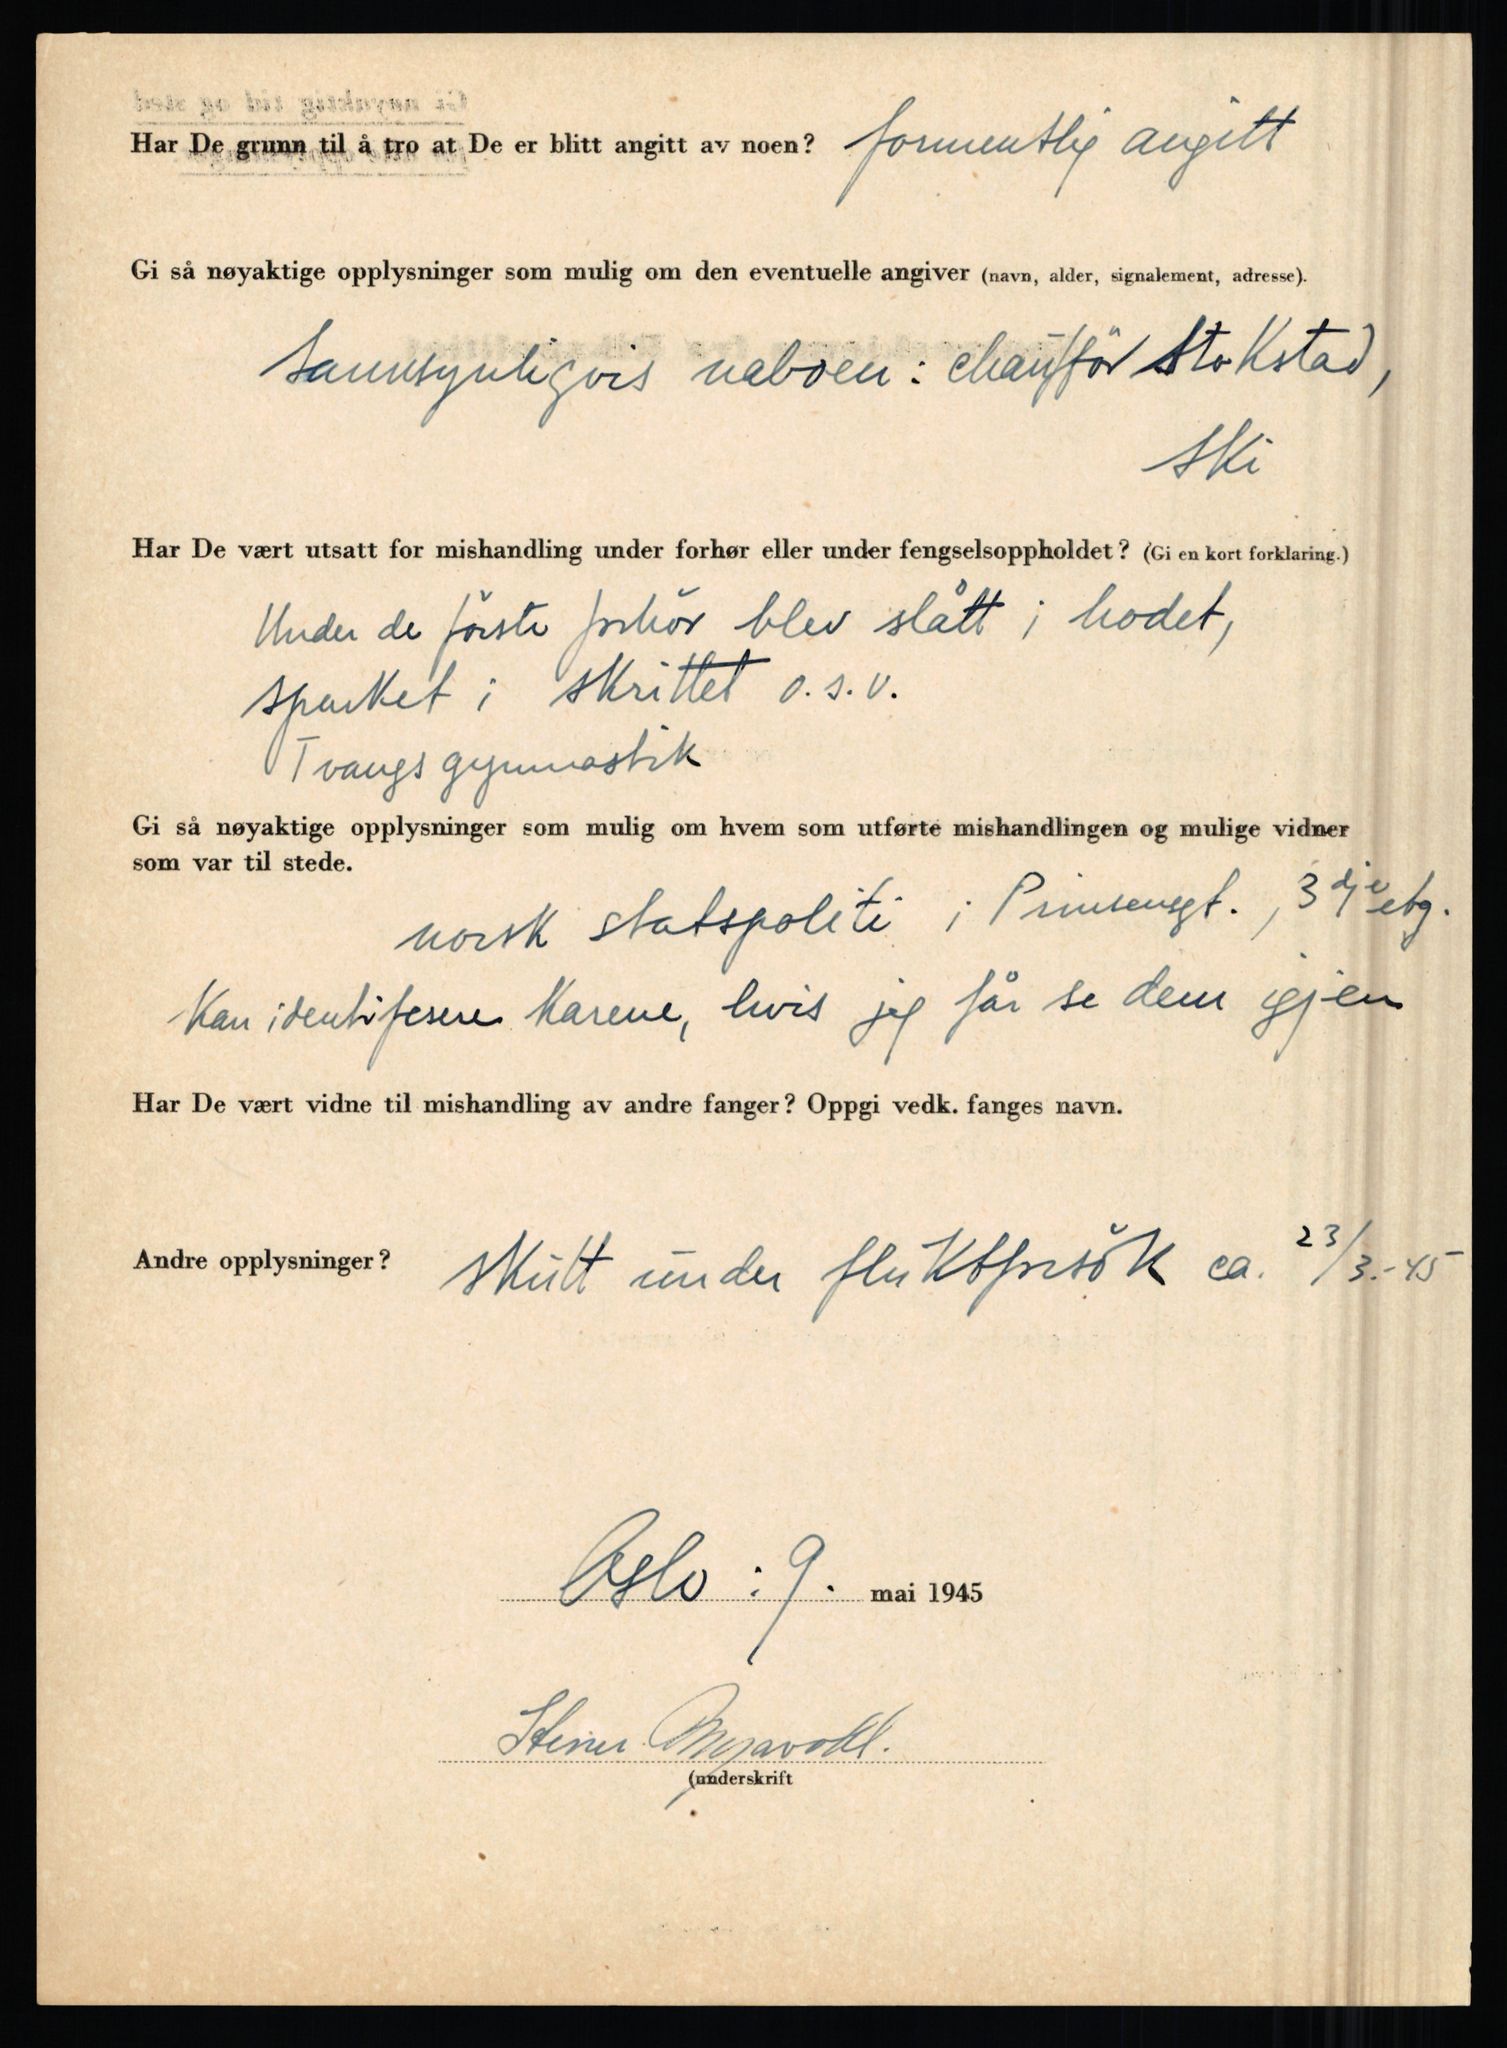 Har De grunn til å tro at De er blitt angitt av noen? formentlig angitt
Gi så nøyaktige opplysninger som mulig om den eventuelle angiver (navn, alder, signalement, adresse).
Sannsynligvis naboen: chaufför Stokstad,
Ski
Har De vært utsatt for mishandling under forhør eller under fengselsoppholdet? (Gi en kort forklaring.)
Under de förste forhör blev slått i hodet,
sparket i skrittet o.s.v.
Tvangsgymnastik
Gi så nøyaktige opplysninger som mulig om hvem som utførte mishandlingen og mulige vidner
som var til stede.
norsk statspoliti i Prinsensgt., 3dje etg.
Kan identifesere karene, hvis jeg får se dem igjen
Har De vært vidne til mishandling av andre fanger? Oppgi vedk. fanges navn.
Andre opplysninger? Skutt under fluktforsök ca. 23/3.-45
Oslo : 9. mai 1945
(underskrift